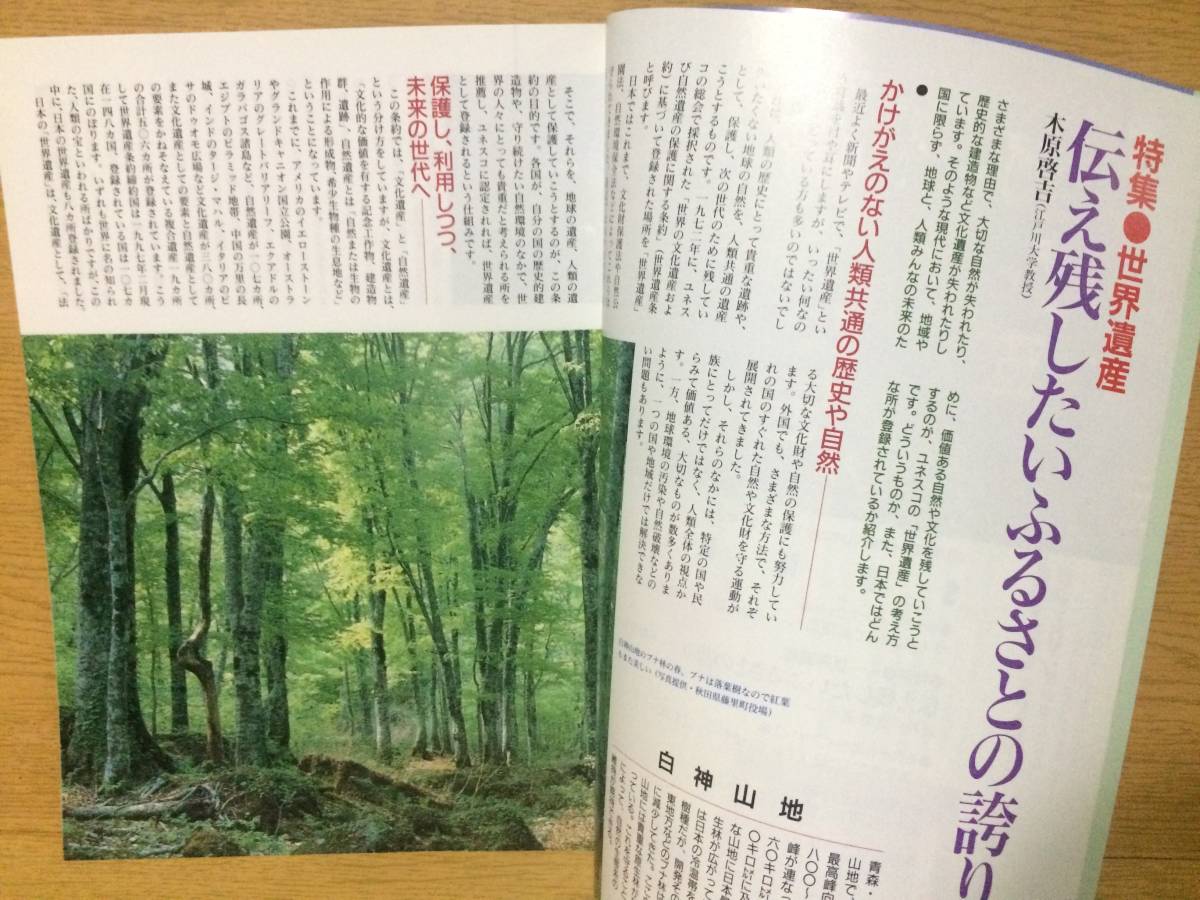 特集●世界遺産
伝え残したいふるさとの誇り
木原啓吉（江戸川大学教授）
さまざまな理由で、大切な自然が失われたり、
歴史的な建造物など文化遺産が失われたりし
ています。そのような現代において、地域や
国に限らず、地球と、人類みんなの未来のた
めに、価値ある自然や文化を残していこうと
するのが、ユネスコの「世界遺産」の考え方
です。どういうものか、また、日本ではどん
な所が登録されているか紹介します。
●
かけがえのない人類共通の歴史や自然
最近よく新聞やテレビで、「世界遺産」とい
を耳にしますが、いったい何なの
ている方も多いのではないでし
人類の歴史にとって貴重な遺跡や、
かけがえのない地球の自然を、人類共通の遺産
として、保護し、次の世代のために残してい
こうとするものです。一九七二年に、ユネス
コの総会で採択された「世界の文化遺産およ
び自然遺産の保護に関する条約」（世界遺産条
約）に基づいて登録された場所を「世界遺産」
と呼びます。
日本ではこれまで、文化財保護法や自然公
園法、自然環境保全法などによって
る大切な文化財や自然の保護にも努力してい
ます。外国でも、さまざまな方法で、それぞ
れの国のすぐれた自然や文化財を守る運動が
展開されてきました。
しかし、それらのなかには、特定の国や民
族にとってだけではなく、人類全体の視点か
らみて価値ある、大切なものが数多くありま
す。一方、地球環境の汚染や自然破壊などの
ように、一つの国や地域だけでは解決できな
い問題もあります。
白神山地のブナ林の春。ブナは落葉樹なので紅葉
もまた美しい（写真提供・秋田県藤里町役場）
白神山地
青森・
山地で、
最高峰向
八〇〇〜
峰が連なっ
六〇キロ
〇キロに及
な山地に日本
生林が広がって
は日本の冷温帯を
樹種だが、開発その
東地方などのブナ林は
に減少してきた。ここ
山地には貴重な原生林が
っている。
そこで、それらを、地球の遺産、人類の遺
産として保護していこうとするのが、この条
約の目的です。各国が、自分の国の歴史的建
造物や、守り続けたい自然環境のなかで、世
界の人々にとっても貴重だと考えられる所を
推薦し、ユネスコに認定されれば、世界遺産
として登録されるという仕組みです。
保護し、利用しつつ、
未来の世代へ
この条約では、「文化遺産」と「自然遺産」
という分け方をしていますが、文化遺産とは、
「文化的な価値を有する記念工作物、建造物
群、遺跡」、自然遺産とは「自然または生物の
作用による形成物、希少生物種の生息地など」
ということになっています。
これまでに、アメリカのイエローストーン
やグランドキャニオン国立公園、オーストラ
リアのグレートバリアリーフ、エクアドルの
ガラパゴス諸島など、自然遺産が一〇七カ所、
エジプトのピラミッド地帯、中国の万里の長
城、インドのタージ・マハル、イタリアのピ
サのドゥオモ広場など文化遺産が三八〇カ所、
また文化遺産としての要素と自然遺産として
の要素をかねそなえている複合遺産一九カ所
の合計五〇六カ所が登録されています。こう
して世界遺産条約締約国は一九九七年二月現
在一四八カ国、登録されている国は一〇七カ
国にのぼります。いずれも世界に名の知られ
た、「人類の宝」といわれる所ばかりですが、この
中に、日本の世界遺産も六カ所登録されました。
日本の「世界遺産」は、文化遺産として、「法